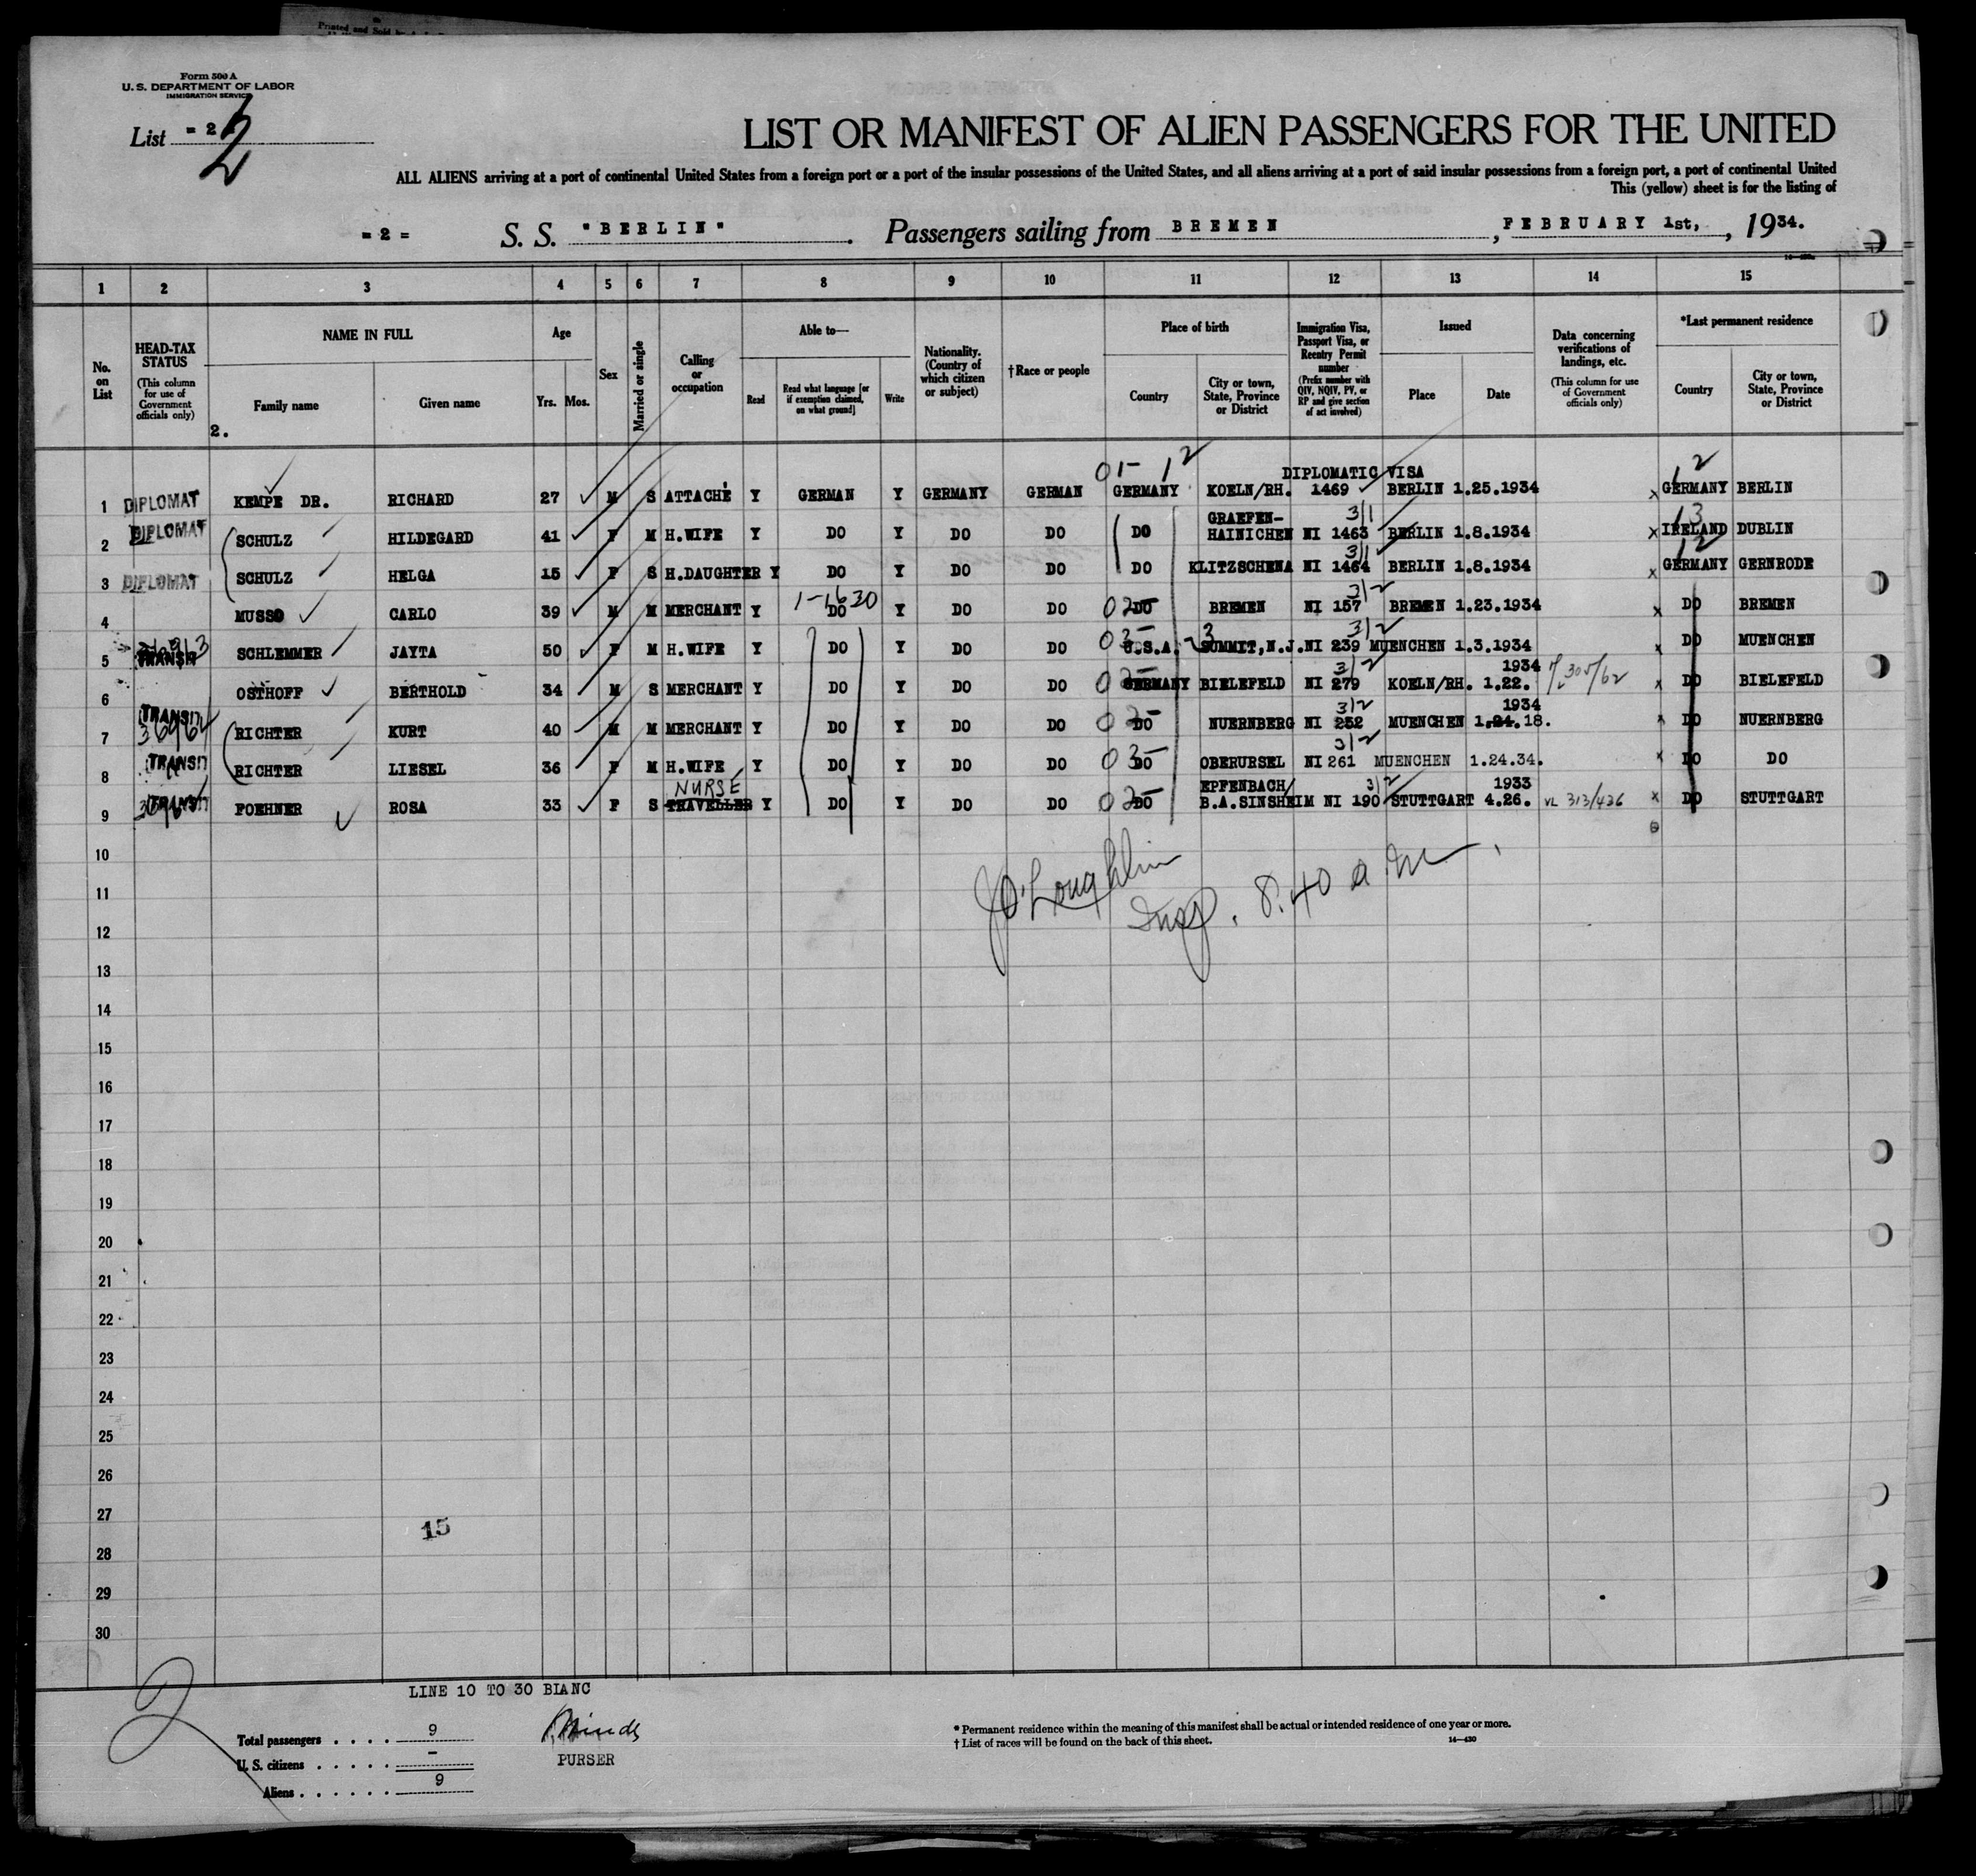 Form 500 A
U. S. DEPARTMENT OF LABOR
IMMIGRATION SERVICE
List = 2
2
LIST OR MANIFEST OF ALIEN PASSENGERS FOR THE UNITED
ALL ALIENS arriving at a port of continental United States from a foreign port or a port of the insular possessions of the United States, and all aliens arriving at a port of said insular possessions from a foreign port, a port of continental United
This (yellow) sheet is for the listing of
= 2 = S. S. "BERLIN". Passengers sailing from BREMEN, FEBRUARY 1st, 1934.
1 2 3 4 5 6 7 8 9 10 11 12 13 14 15
No. on List
HEAD-TAX STATUS (This column for use of Government officials only)
NAME IN FULL
Family name Given name
Age
Yrs. Mos.
Sex
Married or single
Calling or occupation
Able to—
Read
Read what language [or if exemption claimed, on what ground]
Write
Nationality. (Country of which citizen or subject)
† Race or people
Place of birth
Country
City or town, State, Province or District
Immigration Visa, Passport Visa, or Reentry Permit number (Prefix number with QIV, NQIV, PV, or RP and give section of act involved)
Issued
Place Date
Data concerning verifications of landings, etc. (This column for use of Government officials only)
*Last permanent residence
Country
City or town, State, Province or District
2.
05- 12 DIPLOMATIC VISA 12
1 DIPLOMAT KEMPE DR. RICHARD 27 M S ATTACHÉ Y GERMAN Y GERMANY GERMAN GERMANY KOELN/RH. 1469 BERLIN 1.25.1934 x GERMANY BERLIN
GRAEFEN- 3/1 13
2 DIPLOMAT SCHULZ HILDEGARD 41 F M H.WIFE Y DO Y DO DO DO HAINICHEN NI 1463 BERLIN 1.8.1934 x IRELAND DUBLIN
3/1 12
3 DIPLOMAT SCHULZ HELGA 15 F S H.DAUGHTER Y DO Y DO DO DO KLITZSCHENA NI 1464 BERLIN 1.8.1934 x GERMANY GERNRODE
1-1630 3/2
4 MUSSO CARLO 39 M M MERCHANT Y DO Y DO DO DO BREMEN NI 157 BREMEN 1.23.1934 x DO BREMEN
3/2
5 TRANSIT SCHLEMMER JAYTA 50 F M H.WIFE Y DO Y DO DO U.S.A. 23 SUMMIT, N.J. NI 239 MUENCHEN 1.3.1934 x DO MUENCHEN
3/2 1934
6 OSTHOFF BERTHOLD 34 M S MERCHANT Y DO Y DO DO GERMANY BIELEFELD NI 279 KOELN/RH. 1.22. x DO BIELEFELD
TRANSIT 3/2 1934
7 RICHTER KURT 40 M M MERCHANT Y DO Y DO DO DO NUERNBERG NI 252 MUENCHEN 1.24. 18. x DO NUERNBERG
3/2
8 TRANSIT RICHTER LIESEL 36 F M H.WIFE Y DO Y DO DO DO OBERURSEL NI 261 MUENCHEN 1.24.34. x DO DO
NURSE EPFENBACH/ 3/2 1933
9 TRANSIT FOEHNER ROSA 33 F S TRAVELLER Y DO Y DO DO DO B.A.SINSHEIM NI 190 STUTTGART 4.26. VL 313/436 x DO STUTTGART
10
JO'Loughlin
11
Insp. 8.40 a m.
12
13
14
15
16
17
18
19
20
21
22
23
24
25
26
27
15
28
29
30
LINE 10 TO 30 BIANC
2
Total passengers . . . . 9
U. S. citizens . . . . . –
Aliens . . . . . . 9
PURSER
* Permanent residence within the meaning of this manifest shall be actual or intended residence of one year or more.
† List of races will be found on the back of this sheet.
14—430